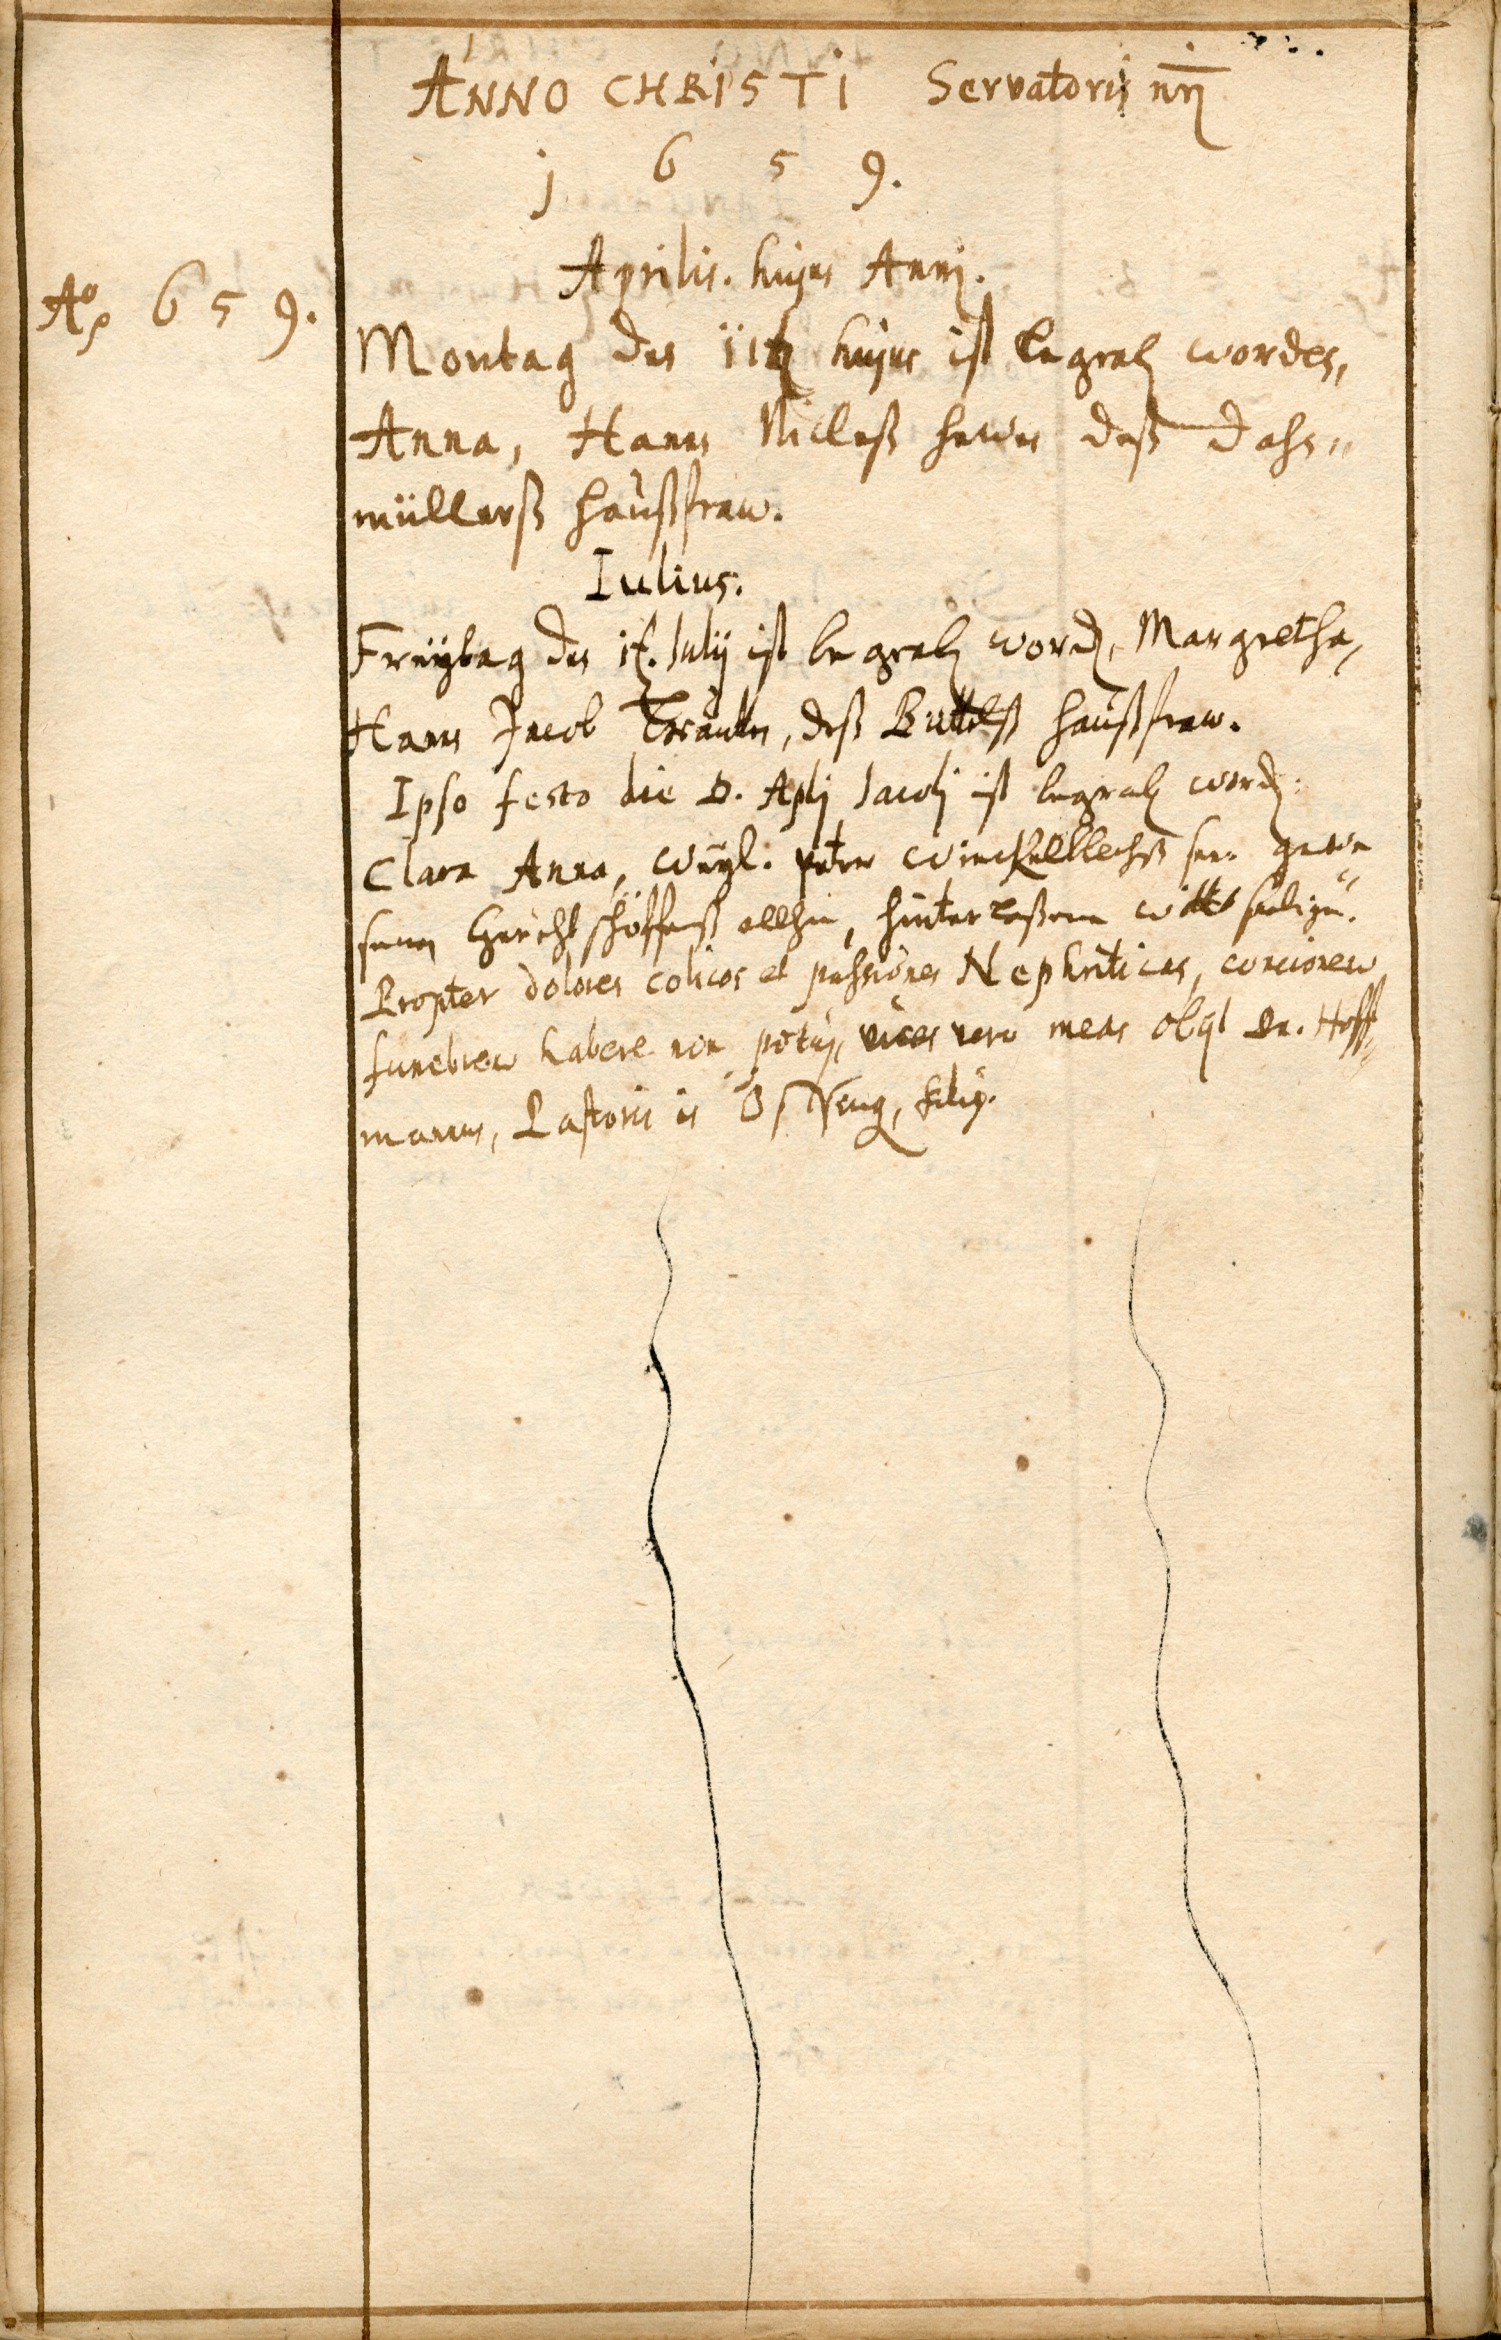 ANNO CHRISTI Servatoris nrj
1 6 5 9.
Aprilis. hujus Annj.
Ao 6 5 9.
Montag den 11t hujus ist begrab worden,
Anna, Hans Niclaß deß Dahn„
müllerß haußfraw.
Iulius.
Freÿtag den 1t. Julij ist begrab word, Margretha,
Hans Jacob deß Büttelß haußfraw.
Ipso festo die D. Aplj Jacobj ist begrab word:
Clara Anna, weÿl. Peter Winckelblechß see. gewe„
senen Gerichtschöffenß allhie, hinterlaßene
Propter dolores colicos et passiones Nephriticas, concionem
funebrem habere non potuj, vices vero meas obijt Dn. Hoff„
mannus, Pastoris in filiq.